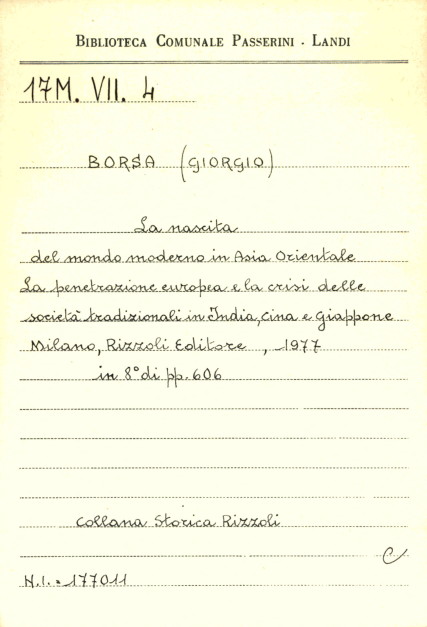 BIBLIOTECA COMUNALE PASSERINI - LANDI
17M. VII. 4
BORSA (GIORGIO)
La nascita
del mondo moderno in Asia Orientale
La penetrazione europea e la crisi delle
società tradizionali in India, Cina e Giappone
Milano, Rizzoli Editore , 1977
in 8° di pp. 606
Collana Storica Rizzoli
C
N.I. = 177011